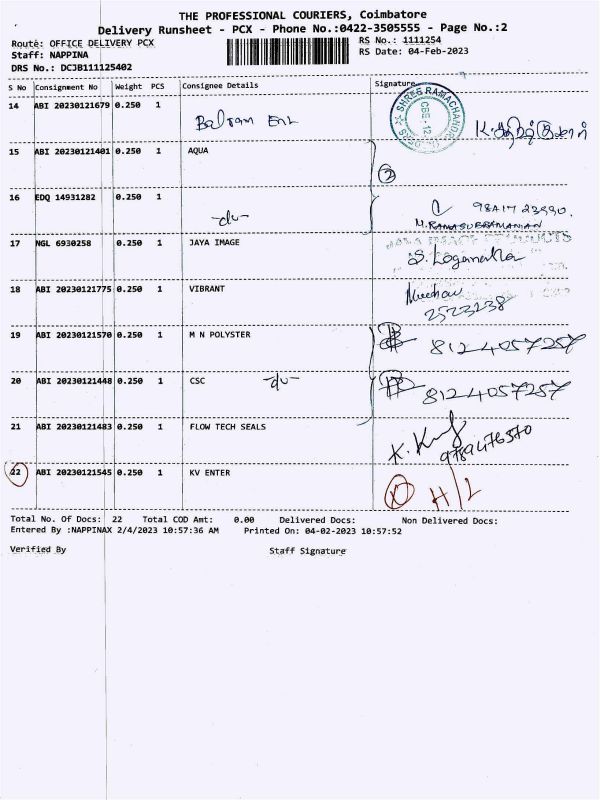 THE PROFESSIONAL COURIERS, Coimbatore
Delivery Runsheet - PCX - Phone No.:0422-3505555 - Page No.:2
Route: OFFICE DELIVERY PCX RS No.: 1111254
Staff: NAPPINA RS Date: 04-Feb-2023
DRS No.: DCJB111125402
S No Consignment No Weight PCS Consignee Details Signature
14 ABI 20230121679 0.250 1 Balram Ent
SHREE RAMACHANDRA
CBE-12
15 ABI 20230121401 0.250 1 AQUA
2
16 EDQ 14931282 0.250 1 -do-
M. RAMASUBRAMANIAN
17 NGL 6930258 0.250 1 JAYA IMAGE
JAYA IMAGE PRODUCTS
S. Loganatha
18 ABI 20230121775 0.250 1 VIBRANT
2523238
19 ABI 20230121570 0.250 1 M N POLYSTER 8124057257
20 ABI 20230121448 0.250 1 CSC -do- 8124057257
21 ABI 20230121483 0.250 1 FLOW TECH SEALS
9789476570
22 ABI 20230121545 0.250 1 KV ENTER H/L
Total No. Of Docs: 22 Total COD Amt: 0.00 Delivered Docs: Non Delivered Docs:
Entered By :NAPPINAX 2/4/2023 10:57:36 AM Printed On: 04-02-2023 10:57:52
Verified By Staff Signature